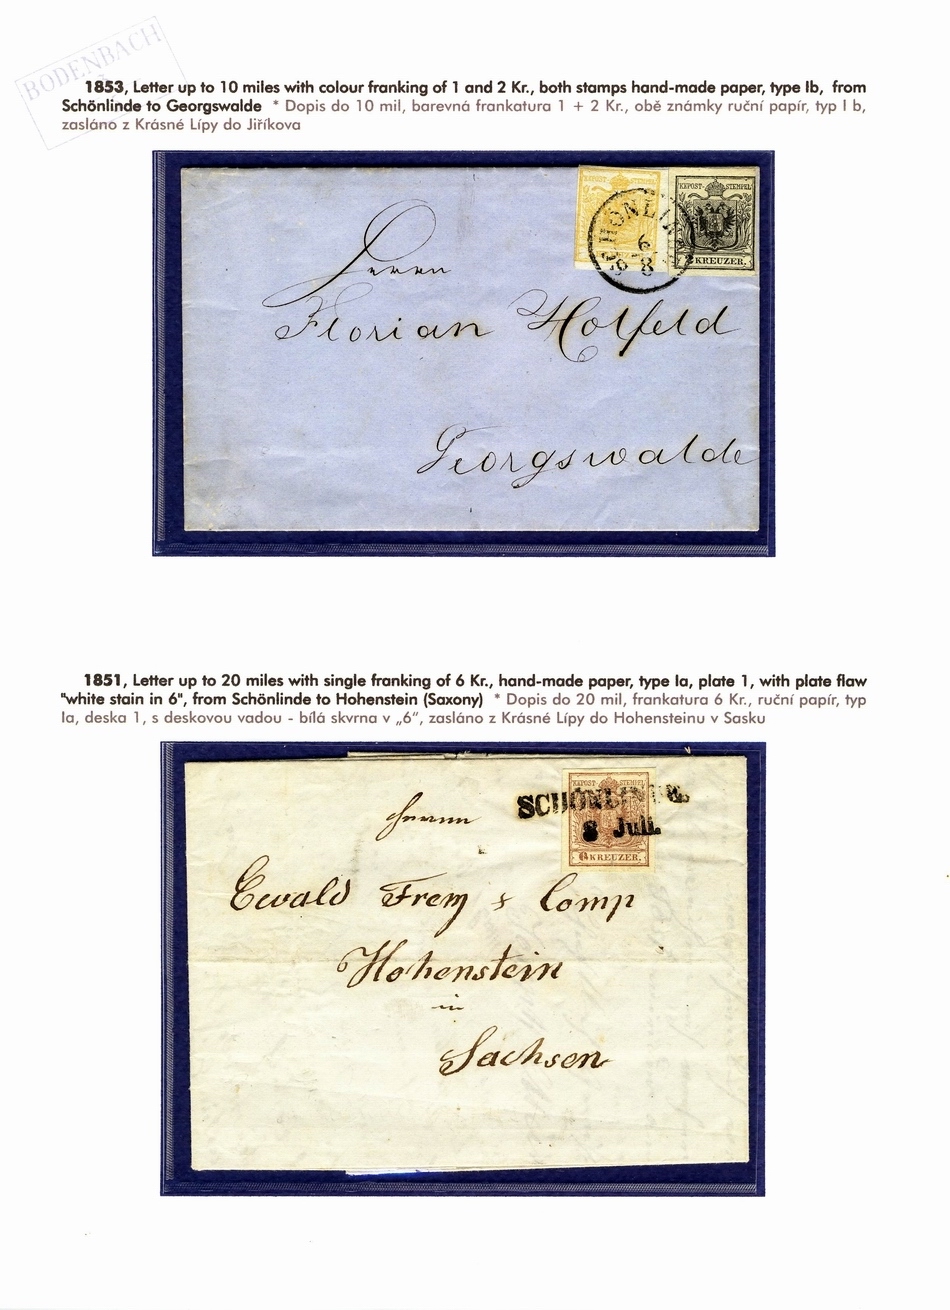 BODENBACH
1853, Letter up to 10 miles with colour franking of 1 and 2 Kr., both stamps hand-made paper, type Ib, from
Schönlinde to Georgswalde * Dopis do 10 mil, barevná frankatura 1 + 2 Kr., obě známky ruční papír, typ I b,
zasláno z Krásné Lípy do Jiříkova
KKPOST-STEMPEL
KKPOST-STEMPEL
SCHÖNLINDE
6
8
2 KREUZER.
Herrn
Florian Holfeld
Georgswalde
1851, Letter up to 20 miles with single franking of 6 Kr., hand-made paper, type Ia, plate 1, with plate flaw
"white stain in 6", from Schönlinde to Hohenstein (Saxony) * Dopis do 20 mil, frankatura 6 Kr., ruční papír, typ
Ia, deska 1, s deskovou vadou - bílá skvrna v „6“, zasláno z Krásné Lípy do Hohensteinu v Sasku
KKPOST-STEMPEL
SCHÖNLINDE.
8 Juli.
6 KREUZER.
Herrn
Ewald Frey & Comp
Hohenstein
in
Sachsen